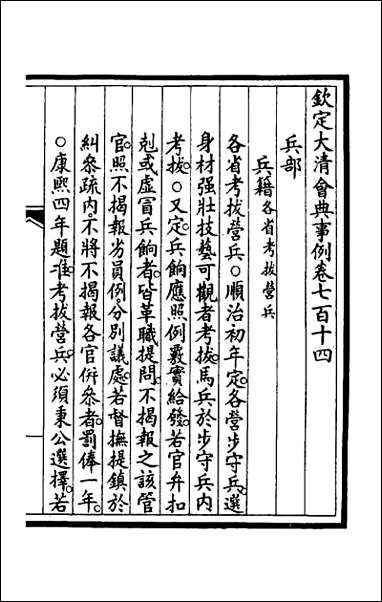 欽定大清會典事例卷七百十四
兵部
兵籍各省考拔營兵
各省考拔營兵○順治初年定。各營步守兵。選
身材强壯技藝可觀者考拔。馬兵於步守兵內
考拔。○又定。兵餉應照例覈實給發。若官弁扣
剋或虛冒兵餉者。皆革職提問。不揭報之該管
官。照不揭報劣員例。分別議處。若督撫提鎮於
糾叅疏內。不將不揭報各官併叅者。罰俸一年。
○康熙四年題准。考拔營兵必須秉公選擇。若